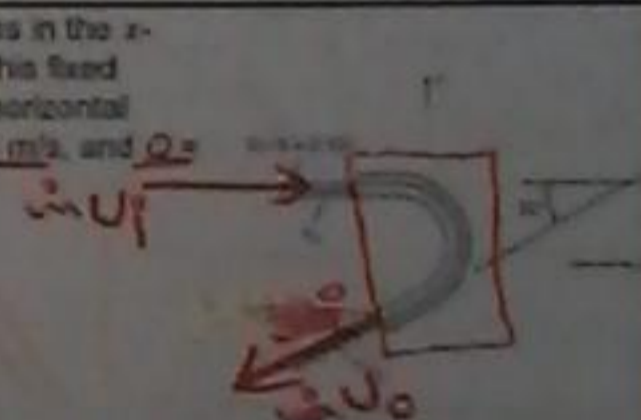 s in the x-
his fixed
horizontal
m/s, and Q =
ṁ Ui
ṁ Uo